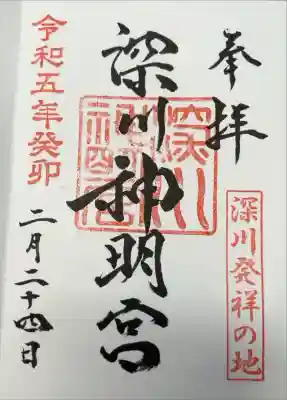 奉拝
深川発祥の地
深川神明宮
令和五年癸卯
二月二十四日